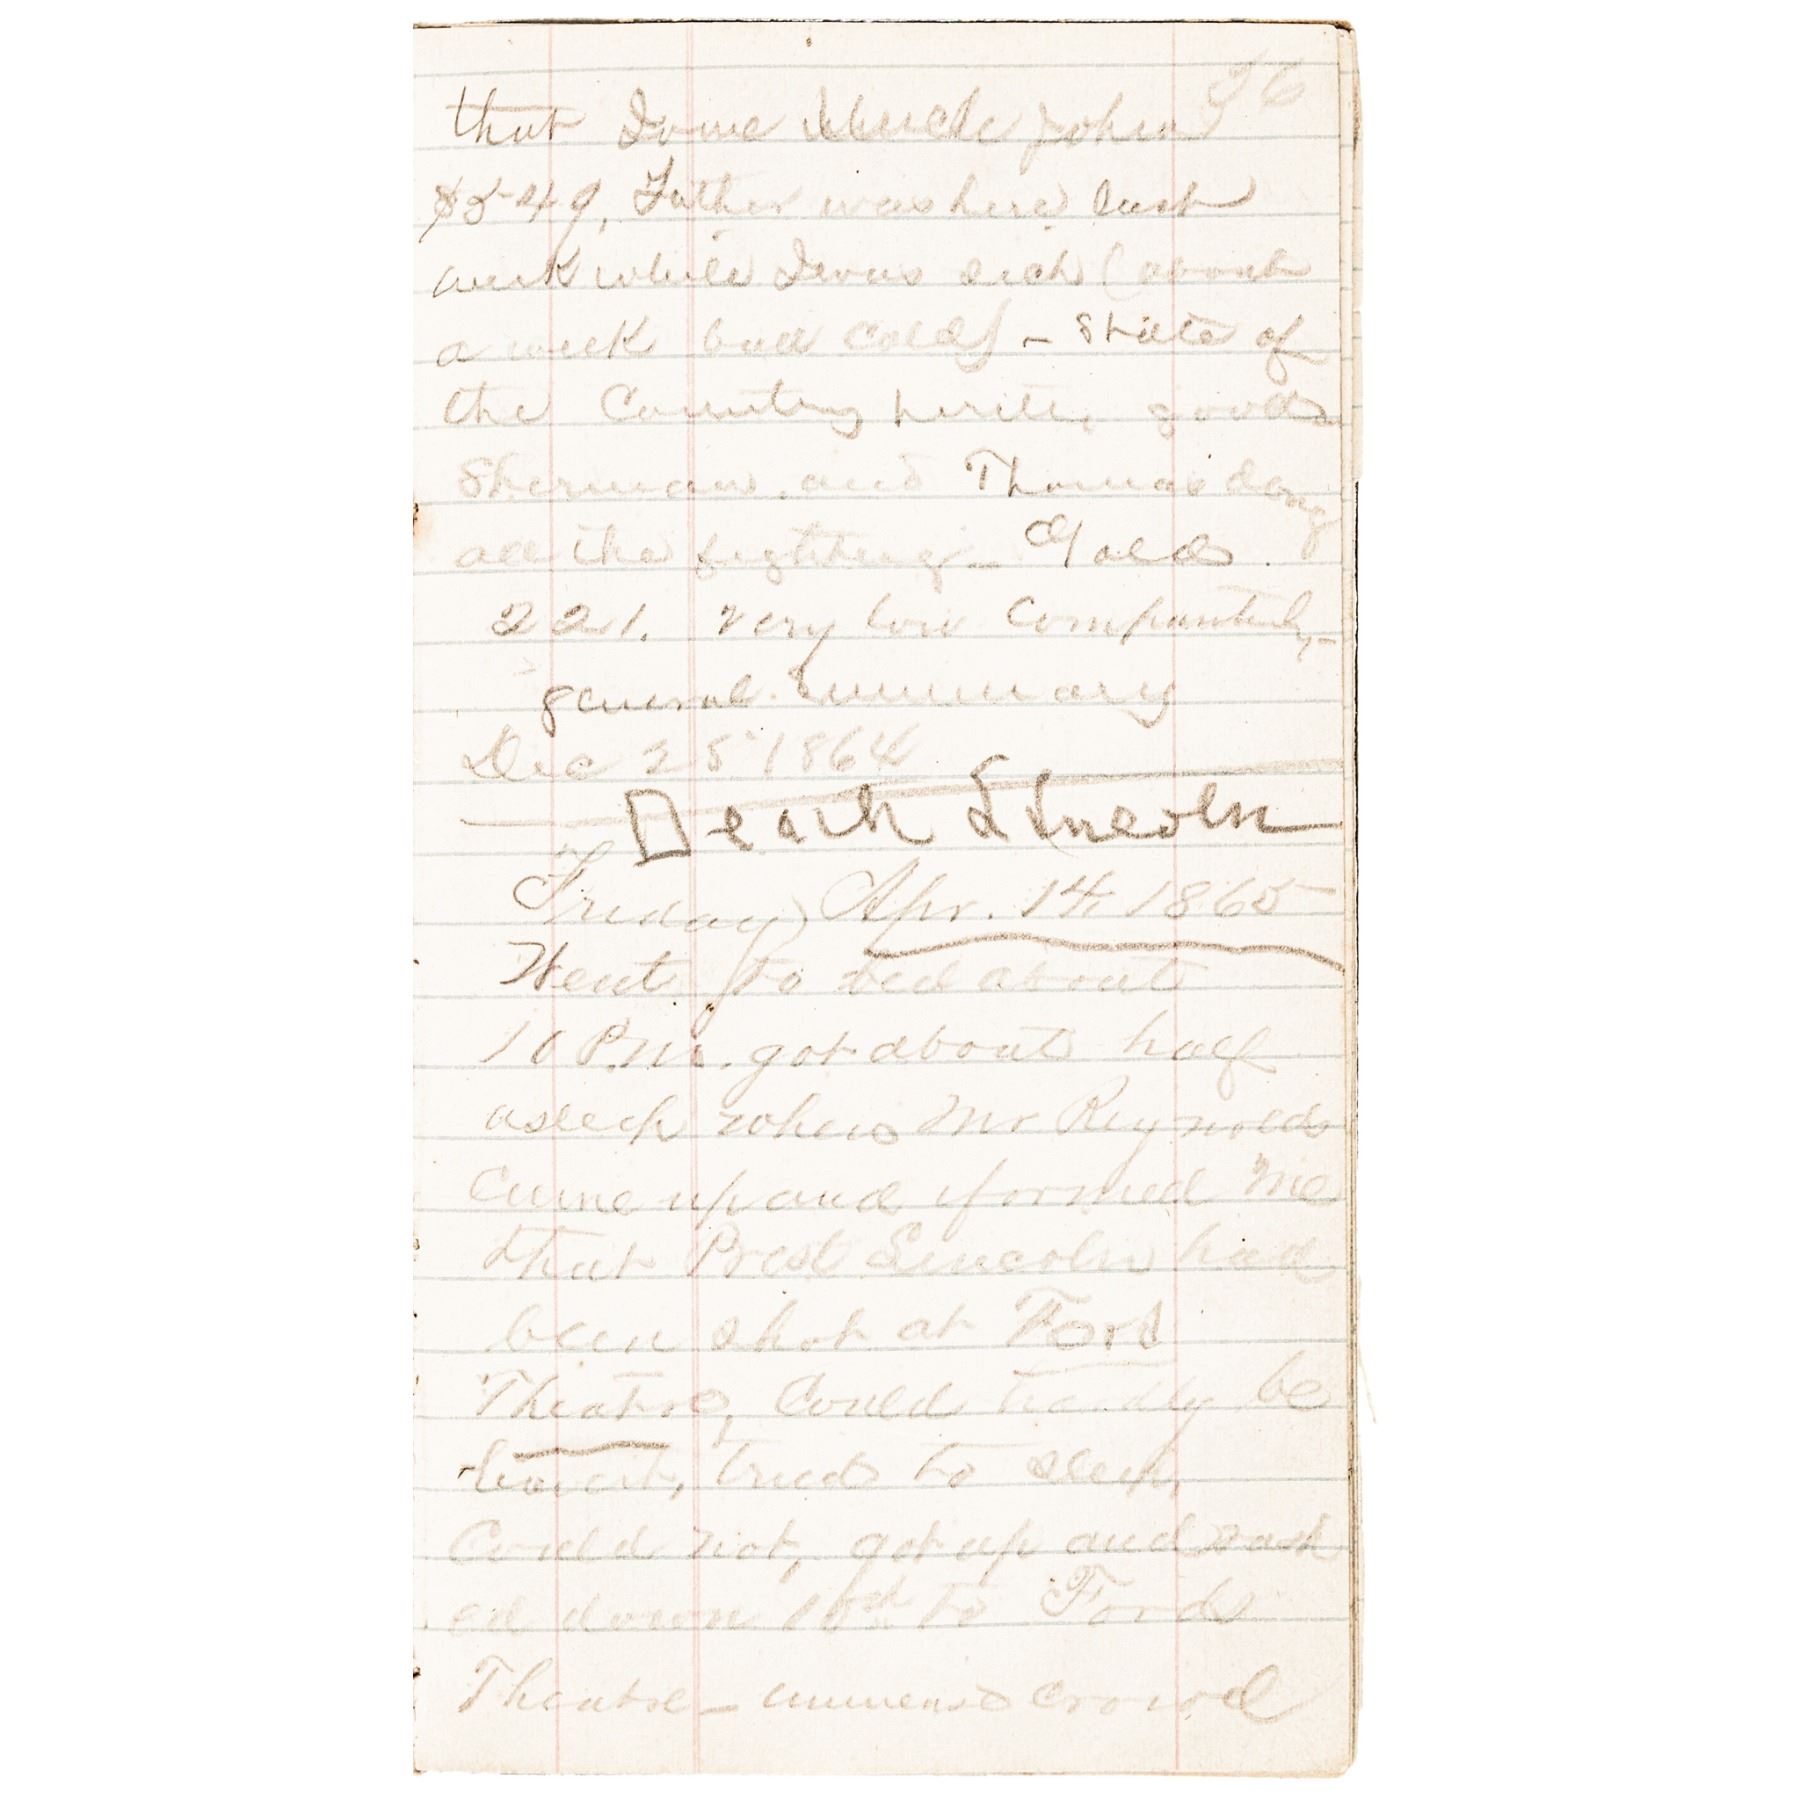 36
that I owe Uncle John
$549, Father was here last
week while I was sick (about
a week bad cold) - State of
the Country pretty good
Sherman and Thomas doing
all the fighting - Gold
221. very low Comparatively, -
general Summary
Dec 25 1864
Death Lincoln
Friday Apr. 14, 1865
Went to bed about
10 P.M. got about half
asleep when Mr Reynolds
Came up and iformed me
that Prest Lincoln had
been shot at Ford
Theatre, Could hardly be
tried to sleep,
Could not, got up and
ed down 10th to Fords
Theatre - immense crowd